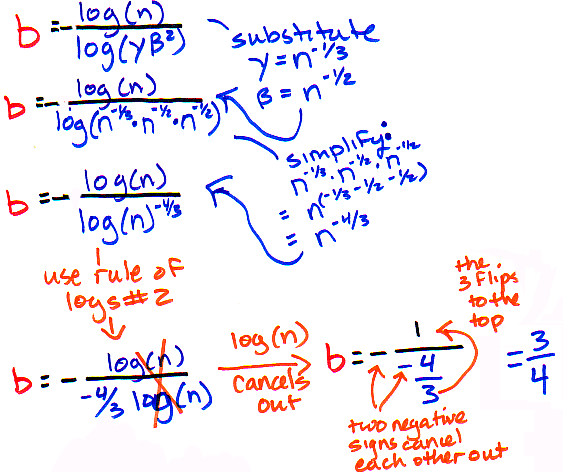 b = - log(n) / log(γβ²)
substitute
γ = n^-1/3
β = n^-1/2
b = - log(n) / log(n^-1/3 · n^-1/2 · n^-1/2)
simplify:
n^-1/3 · n^-1/2 · n^-1/2
= n^(-1/3 -1/2 -1/2)
= n^-4/3
b = - log(n) / log(n)^-4/3
use rule of
logs #2
b = - log(n) / -4/3 log(n)
log(n)
cancels
out
b = - 1 / -4/3
the
3 flips
to the
top
= 3/4
two negative
signs cancel
each other out